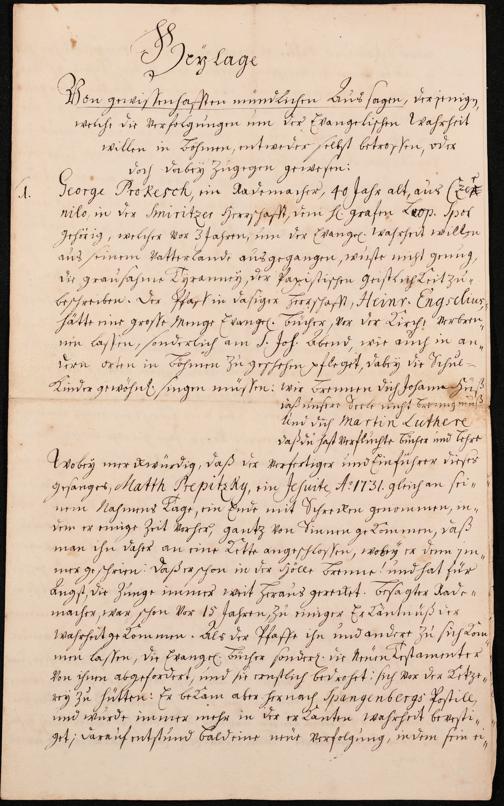 Beylage
Von gewissenhafften mündlichen Aussagen, derjenigen,
welche die Verfolgungen um der Evangelischen Wahrheit
willen in Böhmen, entweder selbst betroffen, oder
doch dabey zugegen gewesen:
1. George Prokesch, ein Rademacher, 40 Jahr alt, aus
nilo, in der Smiritzer Herrschafft, dem H. Grafen Leop.
gehörig, welcher vor 3 Jahren, um der Evangel. Wahrheit willen
aus seinem Vatterlande ausgegangen, wuste nicht genug,
die grausahme Tyranney, der Papistischen Geistlichkeit zu
beschreiben. Der Pfaff in dasiger Herrschafft, Heinr. Engselius,
hätte eine grosse Menge Evangel. Bücher, vor der Kirche verbren-
nen lassen, sonderlich am S. Joh. Abend, wie auch in an-
dern orten in Böhmen zu geschehen pflegt, dabey die Schul-
Kinder gewöhnl. singen müssen: wir brennen dich Johann Huß
daß unsere Seele nicht brennen muß
Und dich Martin Luthere
daß du hast verfluchte bücher und lehre
Wobey merckwürdig, daß der Verfertiger und Einführer dieses
gesanges, Matth Prepitzky, ein Jesuite, Aō 1731. gleich an sei-
nem Nahmens Tage, ein Ende mit Schrecken genommen, in-
dem er einige Zeit vorher, gantz von Sinnen gekommen, daß
man ihn daher an eine Kette angeschlossen, wobey er denn im-
mer geschrien: Daß er schon in der Hölle brenne! und hat für
Angst, die Zunge immer weit heraus gerecket. Besagter Rade-
macher, war schon vor 15 Jahren, zu einiger Erkäntnuß der
Wahrheit gekommen. Als der Pfaffe ihn und andere zu sich kom-
men lassen, die Evangel. Bücher sonderl. die Neuen Testamenter
von ihnen abgefordert, und sie ernstlich bedrohet: sich vor der Ketze-
rey zu hütten: Er bekam aber hernach Spangenbergs Postill,
und wurde immer mehr in der erkanten Wahrheit bevesti-
get; darauf entstund bald eine neue Verfolgung, indem sein ei-